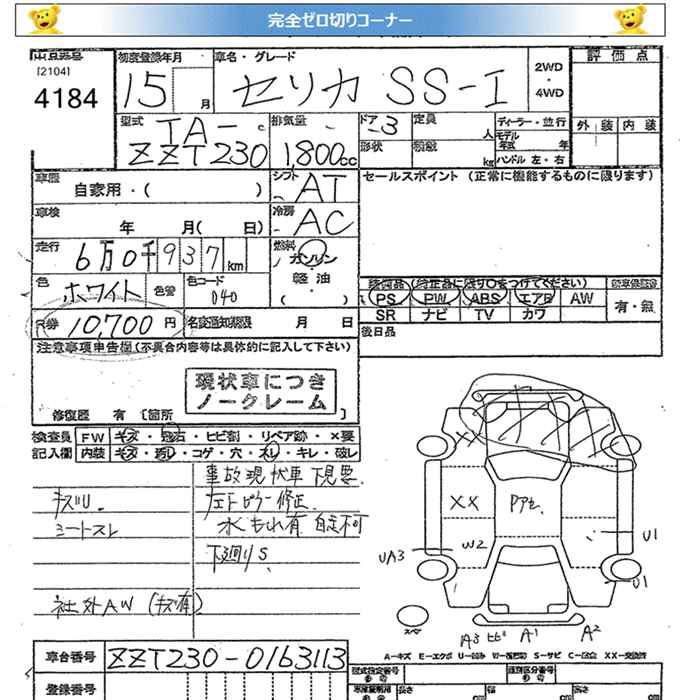 完全ゼロ切りコーナー
出品番号 初度登録年月 車名・グレード 2WD・4WD 評価点
[2104]
4184 15 月 セリカ SS-I
型式 TA- ZZT230 排気量 1,800cc ドア 3 定員 人 ディーラー・並行 外装 内装
形状 積載 kg モデル年式 年
ハンドル 左・右
車歴 自家用・( ) シフト AT セールスポイント (正常に機能するものに限ります)
車検 年 月( 日) 冷房 AC
走行 6万0千937km 燃料 ガソリン・軽油
色 ホワイト 色替 色コード 040 装備品 (純正品に限り○をつけてください)
PS PW ABS エアB AW 有・無
SR ナビ TV カワ
R券 10,700円 名変通知期限 月 日
後日品
注意事項申告欄(不具合内容等は具体的に記入して下さい)
現状車につき
ノークレーム
修復歴 有 [箇所 ]
検査員 FW キズ・飛石・ヒビ割・リペア跡・×要
記入欄 内装 キズ・汚レ・コゲ・穴・スレ・キレ・破レ
事故現状車 下見要
キズU. 左Fピラー修正.
シートスレ 水もれ有 自走不可
下廻りS.
社外AW (キズ有)
XX
XX Pアセ.
W2 U1
UA3
U1
スペア
A3 ヒビ A1 A2
A-キズ E-エクボ U-凹み W-補修跡 S-サビ C-腐食 XX-交換済
車台番号 ZZT230-0163113 型式指定番号 類別区分番号
登録番号 長さ 幅 高さ